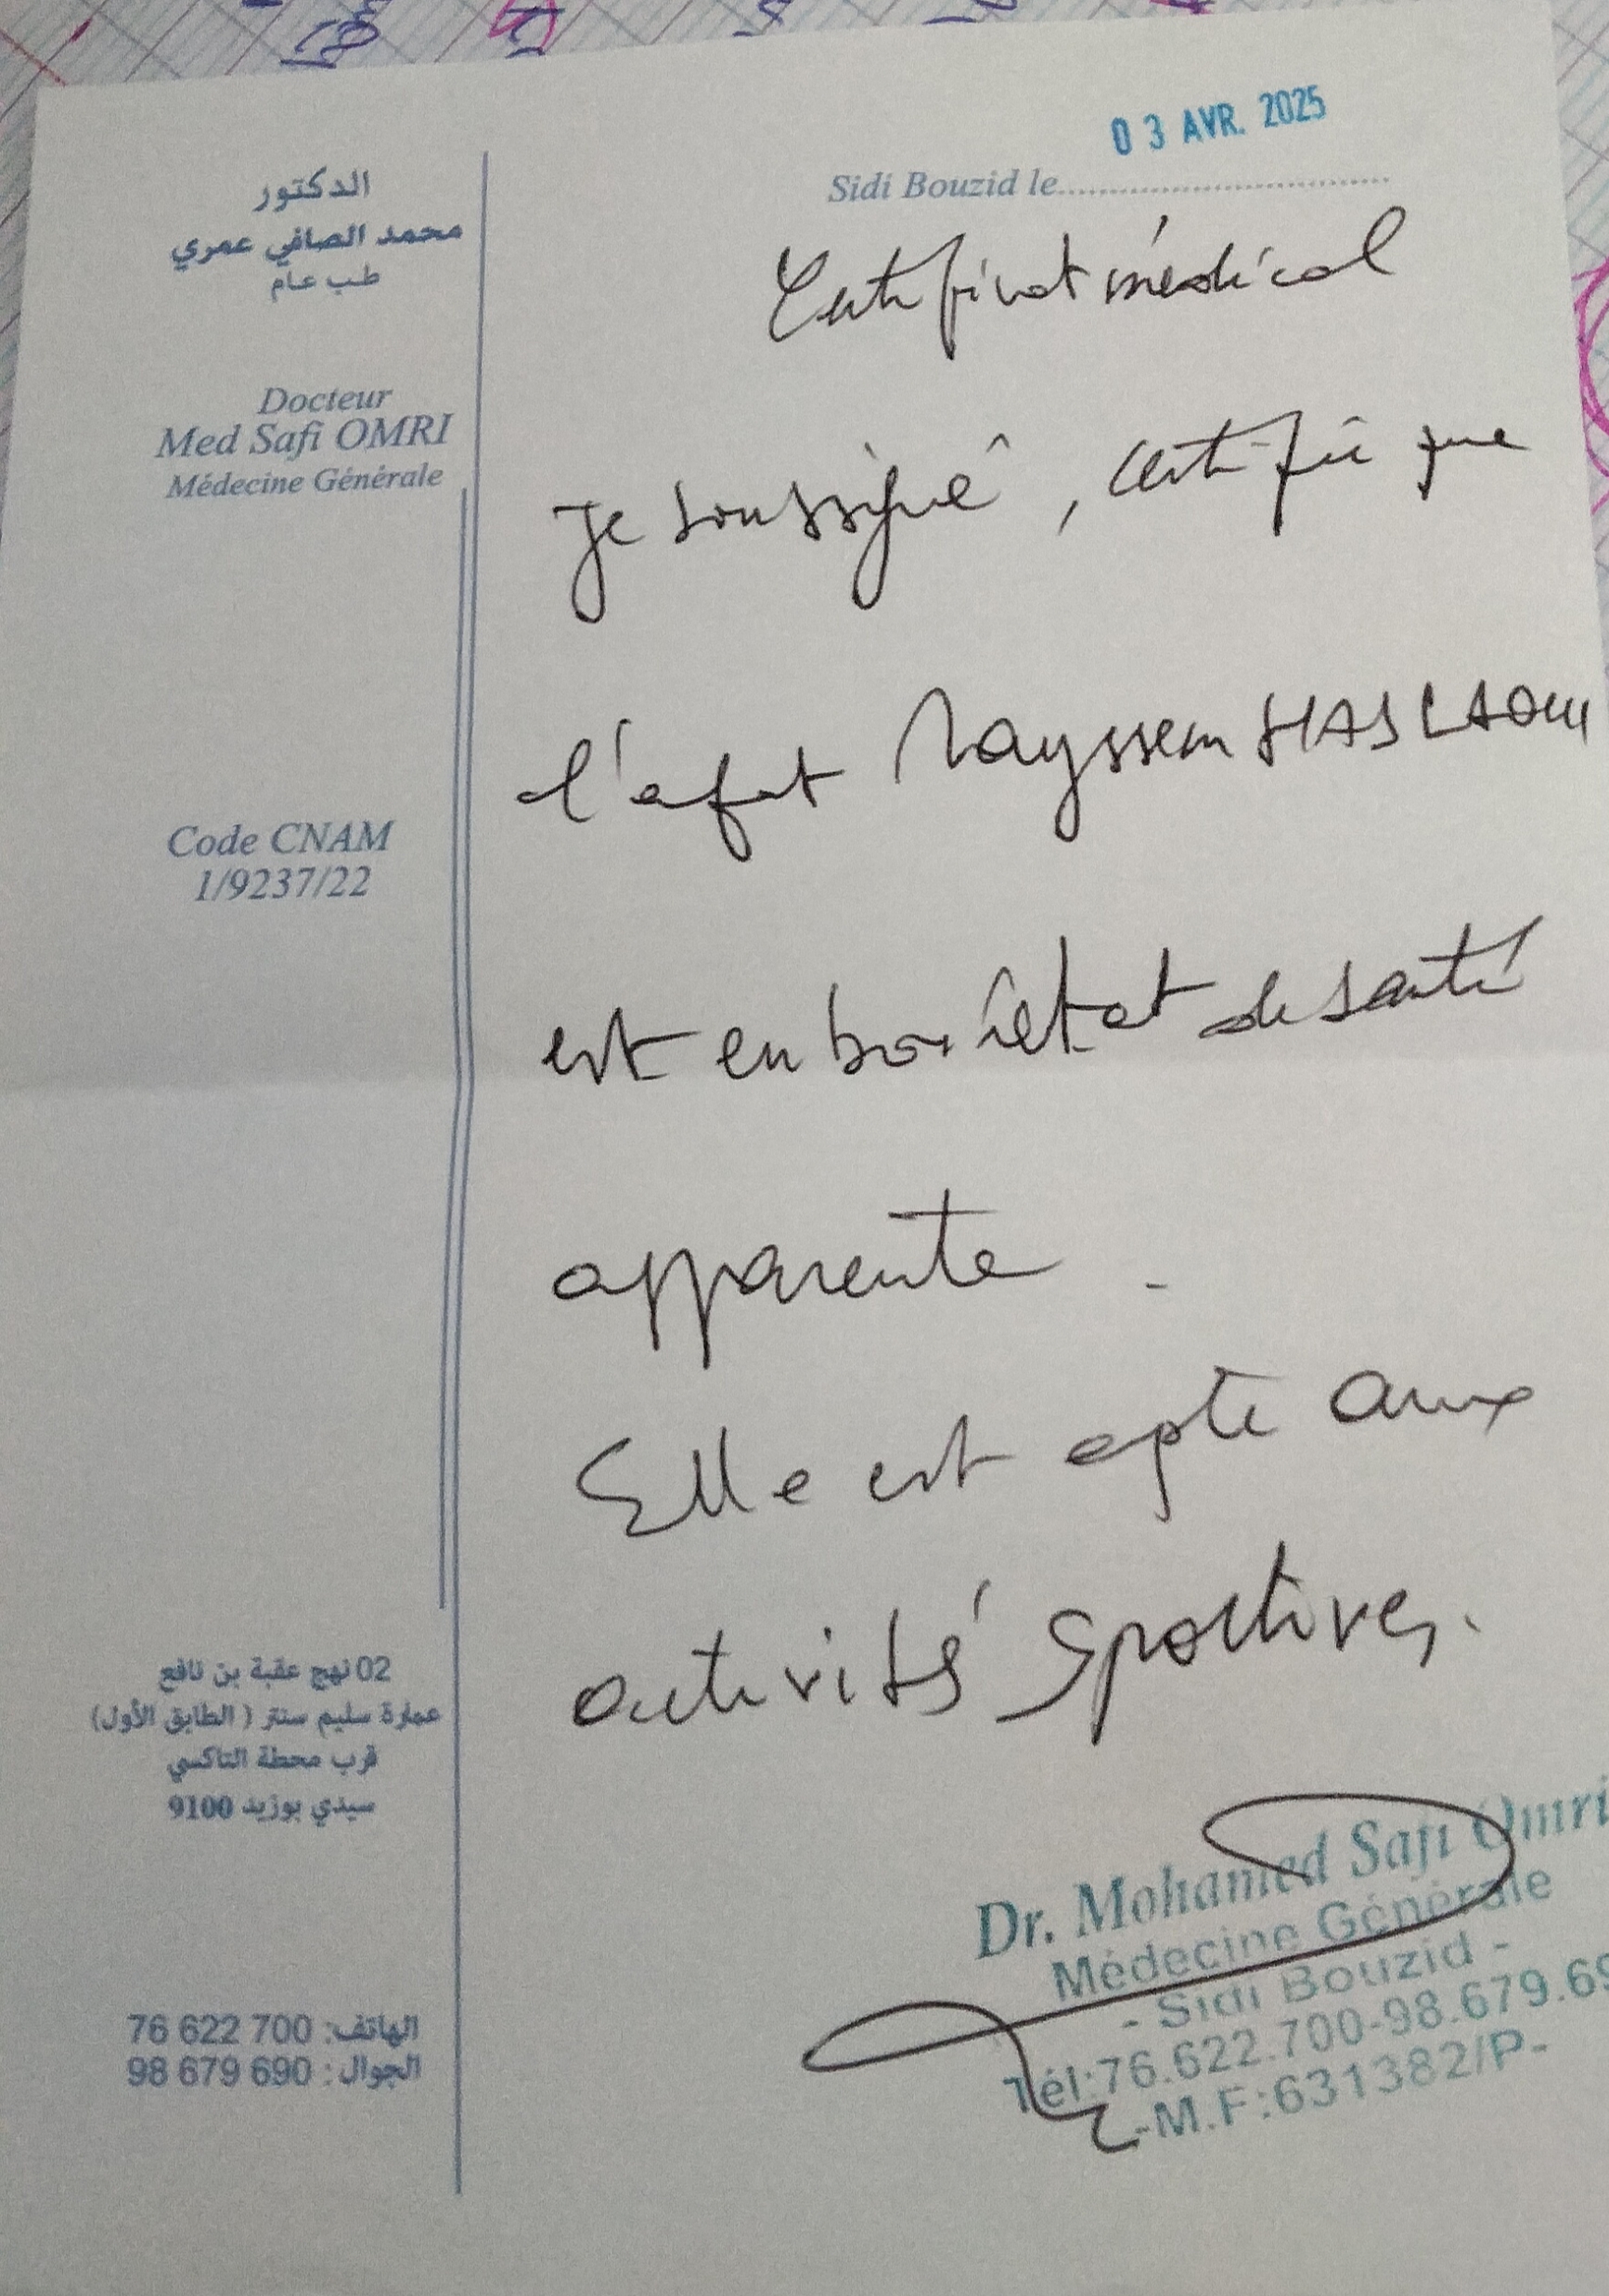 الدكتور
محمد الصافي عمري
طب عام
Docteur
Med Safi OMRI
Médecine Générale
Code CNAM
1/9237/22
02 نهج عقبة بن نافع
عمارة سليم سنتر ( الطابق الأول)
قرب محطة التاكسي
سيدي بوزيد 9100
الهاتف: 700 622 76
الجوال : 690 679 98
03 AVR. 2025
Sidi Bouzid le
Certificat médical
Je soussigné, certifie que
l'enfant Mayssem HASLAOUI
est en bon état de santé
apparente.
Elle est apte aux
activités sportives.
Dr. Mohamed Safi Omri
Médecine Générale
- Sidi Bouzid -
Tél:76.622.700-98.679.69
-M.F:631382/P-